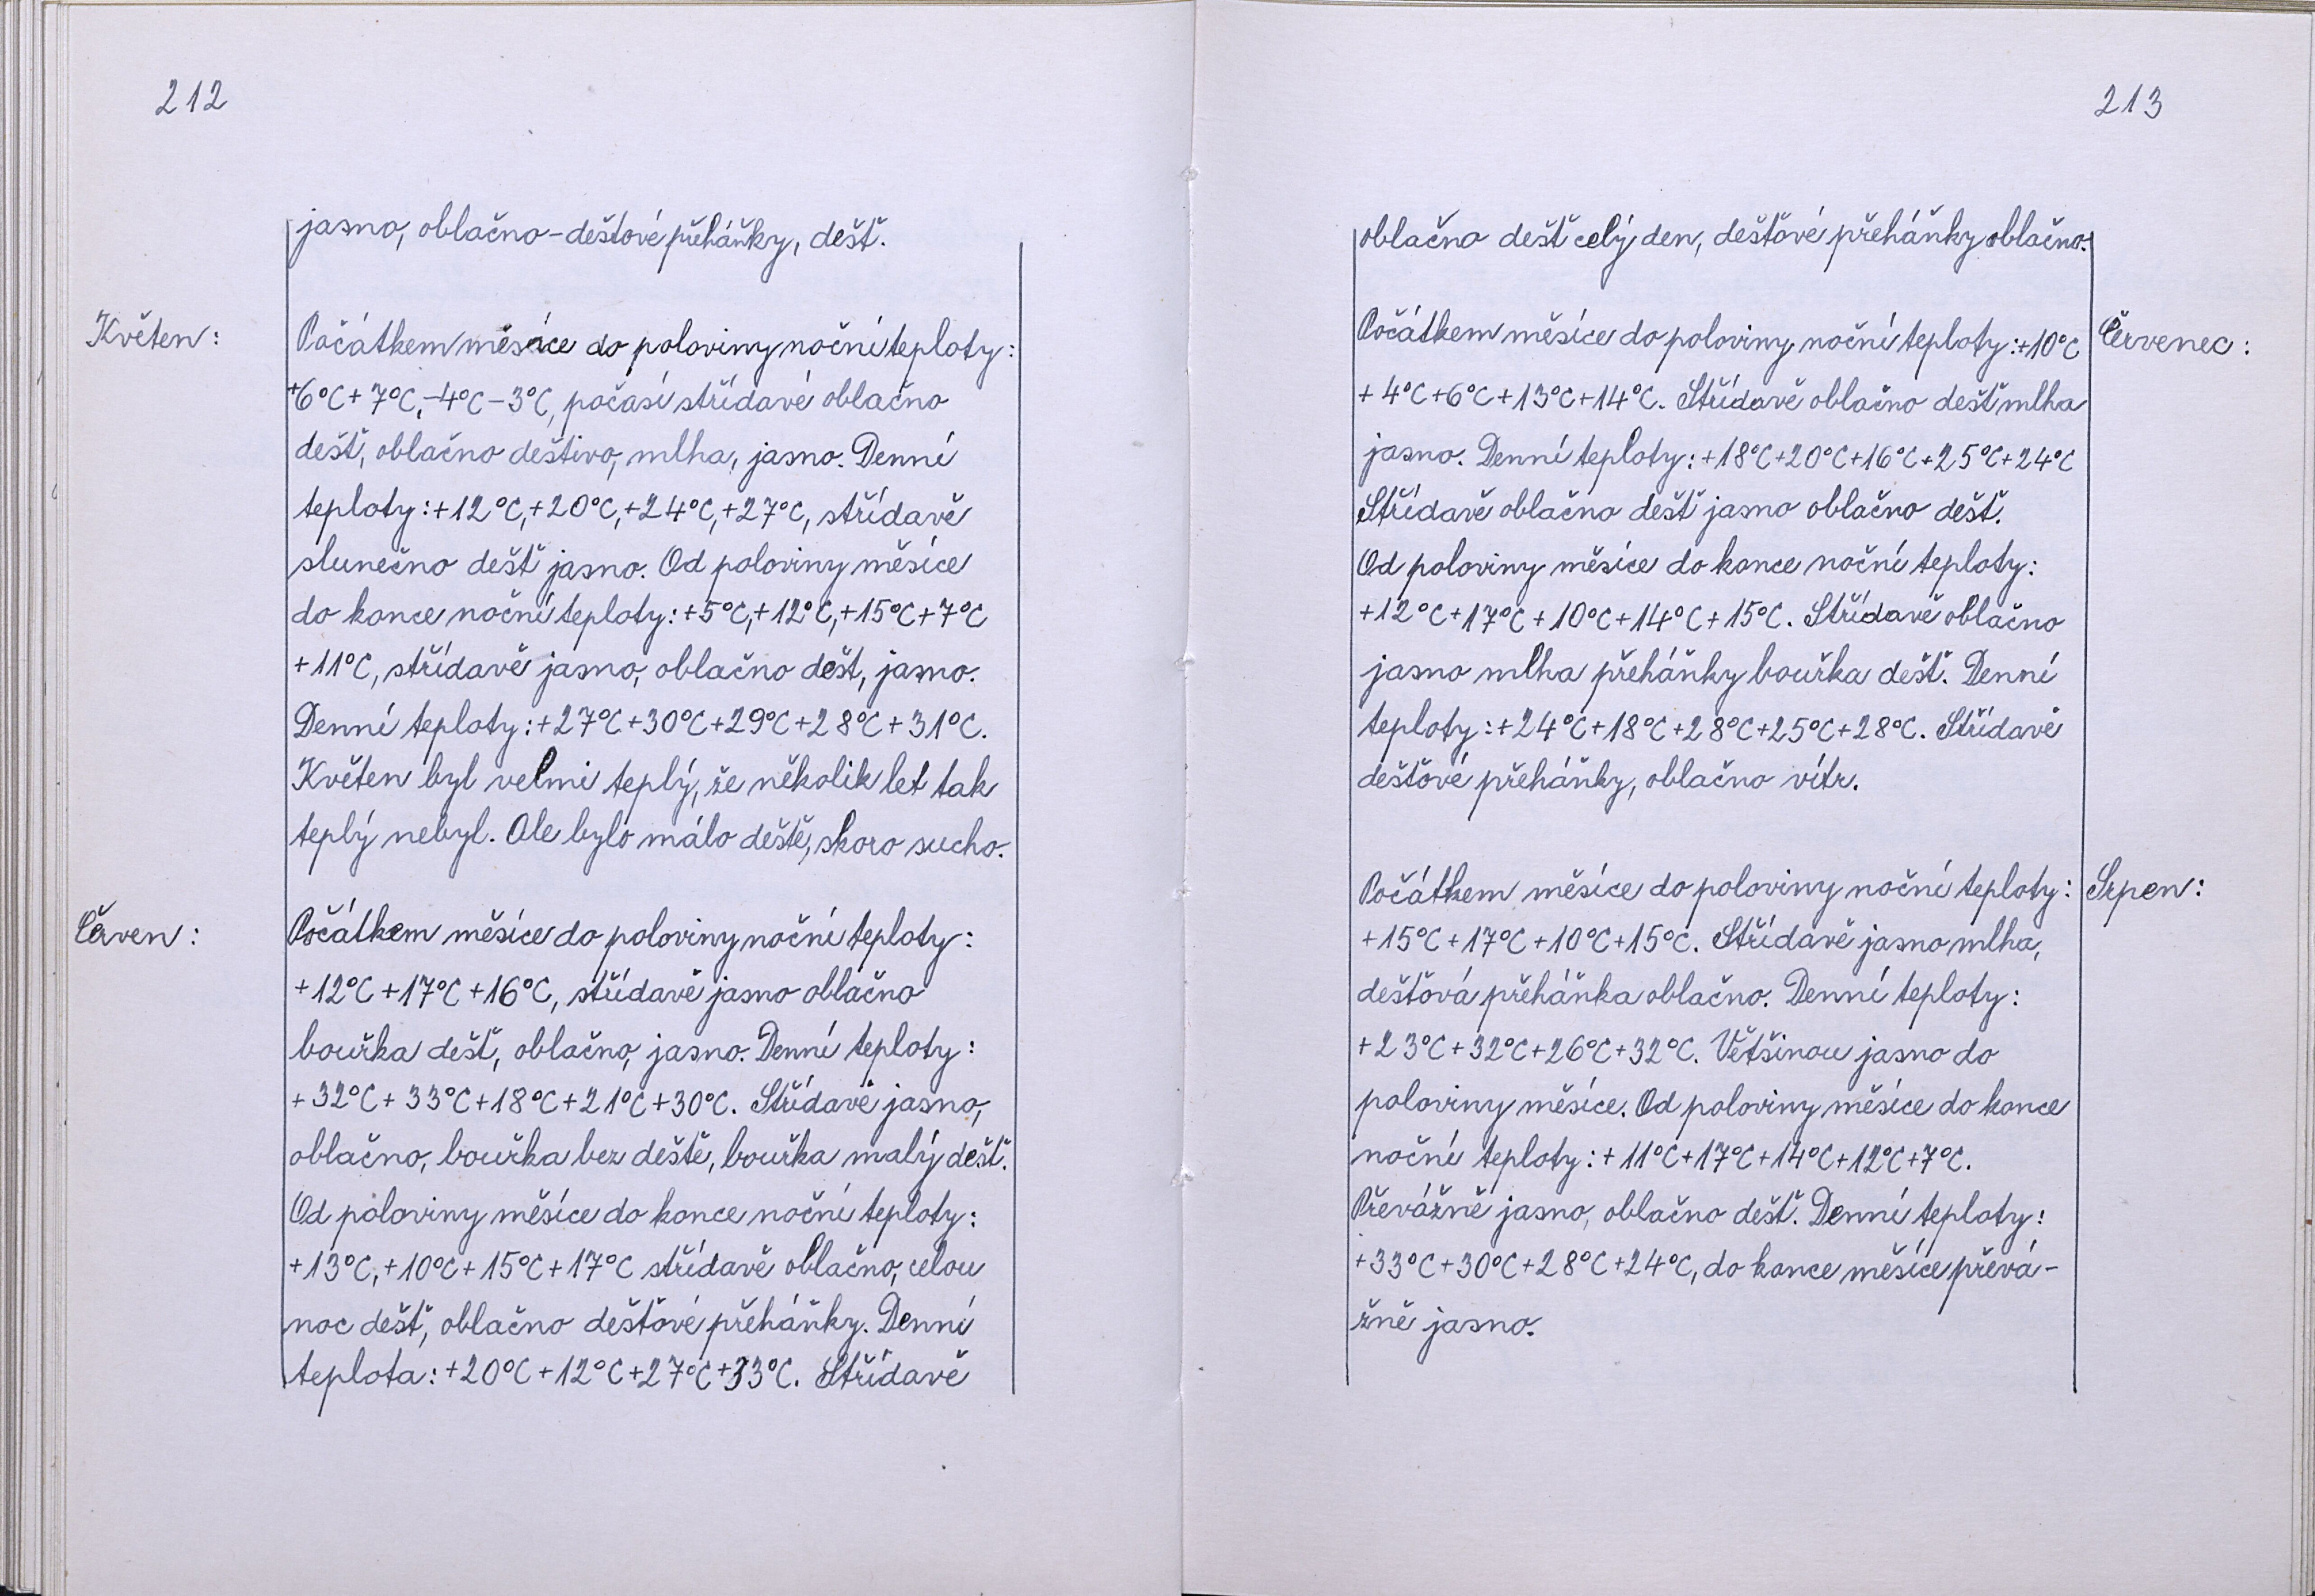 212
jasno, oblačno-dešťové přeháňky, déšť.
Květen:
Počátkem měsíce do poloviny noční teploty:
+6°C + 7°C, -4°C - 3°C, počasí střídavé oblačno
déšť, oblačno deštivo, mlha, jasno. Denní
teploty: +12°C, +20°C, +24°C, +27°C, střídavě
slunečno déšť jasno. Od poloviny měsíce
do konce noční teploty: +5°C, +12°C, +15°C + 7°C
+11°C, střídavě jasno, oblačno déšť, jasno.
Denní teploty: +27°C +30°C +29°C +28°C + 31°C.
Květen byl velmi teplý, že několik let tak
teplý nebyl. Ale bylo málo deště, skoro sucho.
Červen:
Počátkem měsíce do poloviny noční teploty:
+12°C +17°C +16°C, střídavě jasno oblačno
bouřka déšť, oblačno, jasno. Denní teploty:
+32°C + 33°C +18°C +21°C +30°C. Střídavě jasno,
oblačno, bouřka bez deště, bouřka malý déšť.
Od poloviny měsíce do konce noční teploty:
+13°C, +10°C + 15°C + 17°C střídavě oblačno, celou
noc déšť, oblačno dešťové přeháňky. Denní
teplota: +20°C +12°C +27°C +33°C. Střídavě
213
oblačno déšť celý den, dešťové přeháňky oblačno.
Červenec:
Počátkem měsíce do poloviny noční teploty: +10°C
+ 4°C +6°C +13°C +14°C. Střídavě oblačno déšť mlha
jasno. Denní teploty: +18°C +20°C +16°C +25°C +24°C
Střídavě oblačno déšť jasno oblačno déšť.
Od poloviny měsíce do konce noční teploty:
+12°C +17°C +10°C +14°C +15°C. Střídavě oblačno
jasno mlha přeháňky bouřka déšť. Denní
teploty: +24°C +18°C +28°C +25°C +28°C. Střídavě
dešťové přeháňky, oblačno vítr.
Srpen:
Počátkem měsíce do poloviny noční teploty:
+15°C +17°C +10°C +15°C. Střídavě jasno mlha,
dešťová přeháňka oblačno. Denní teploty:
+23°C +32°C +26°C +32°C. Většinou jasno do
poloviny měsíce. Od poloviny měsíce do konce
noční teploty: +11°C +17°C +14°C +12°C +7°C.
Převážně jasno, oblačno déšť. Denní teploty:
+33°C +30°C +28°C +24°C, do konce měsíce převá-
žně jasno.